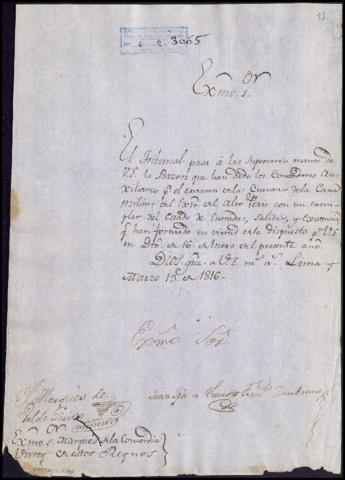 13
6-2-3055
Exmo. S.or
El Tribunal pasa à las superiores manos de
V.E. la Razon que han dado los Contadores Au-
xiliares p.a el examen en las Cuentas de la Caxa
militar del Exto. del alto Perù con un exem-
plar del Estado de Entradas, salidas, y Existencias
q. han formado en virtud de lo dispuesto p.r V.E.
en Dto. de 16 de Enero del presente año.
Dios gue. a V.E. m.s a.s Lima y
Marzo 15 de 1816.
Exmo. Sor.
El Marques de
Valde Lirios
Juan
Exmo. S. Marques de la Concordia
Virrey de estos Reynos